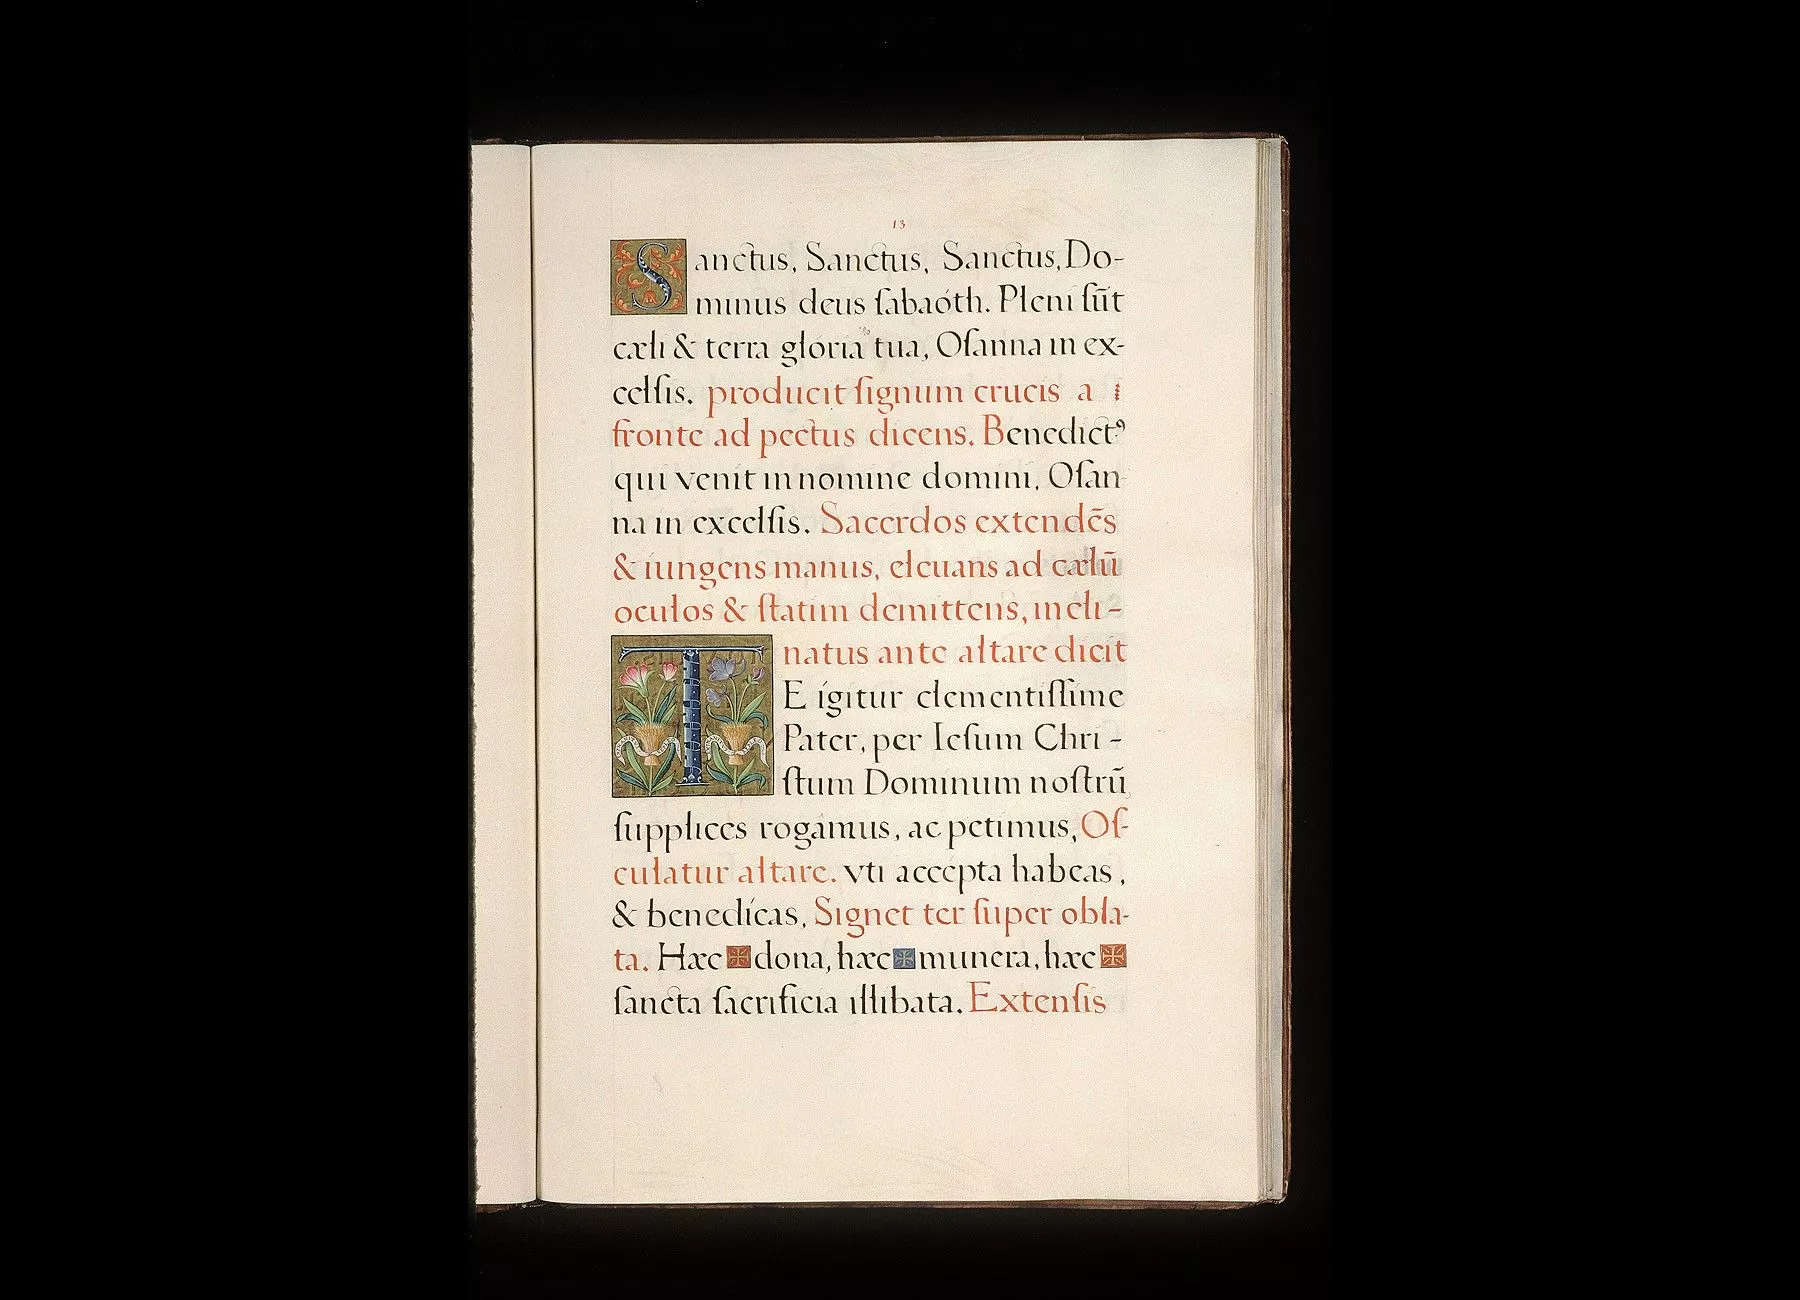 13
Sanctus, Sanctus, Sanctus, Do-
minus deus ſabaóth. Pleni ſūt
cæli & terra gloria tua, Oſanna in ex-
celſis. producit ſignum crucis a
fronte ad pectus dicens. Benedictꝰ
qui venit in nomine domini, Oſan-
na in excelſis. Sacerdos extendēs
& iungens manus, eleuans ad cælū
oculos & ſtatim demittens, incli-
natus ante altare dicit
TE ígitur clementíſſime
Pater, per Ieſum Chri-
ſtum Dominum noſtrū
ſupplices rogámus, ac petimus, Oſ-
culatur altare. vti accépta habeas,
& benedícas, Signet ter ſuper obla-
ta. Hæc ✠ dona, hæc ✠ munera, hæc ✠
ſancta ſacrificia illibata. Extenſis